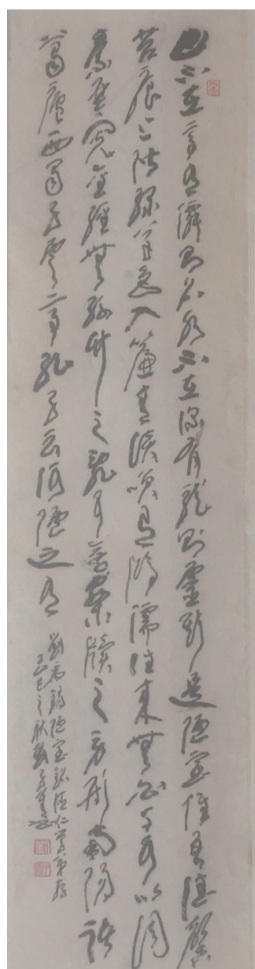 山不在高有僊則名水不在深有龍則靈斯是陋室惟吾德馨
苔痕上階綠草色入簾青談笑有鴻儒往來無白丁可以調
素琴閱金經無絲竹之亂耳無案牘之勞形南陽諸
葛廬西蜀子雲亭孔子云何陋之有
劉禹錫陋室銘德仁賢弟存
己巳之秋